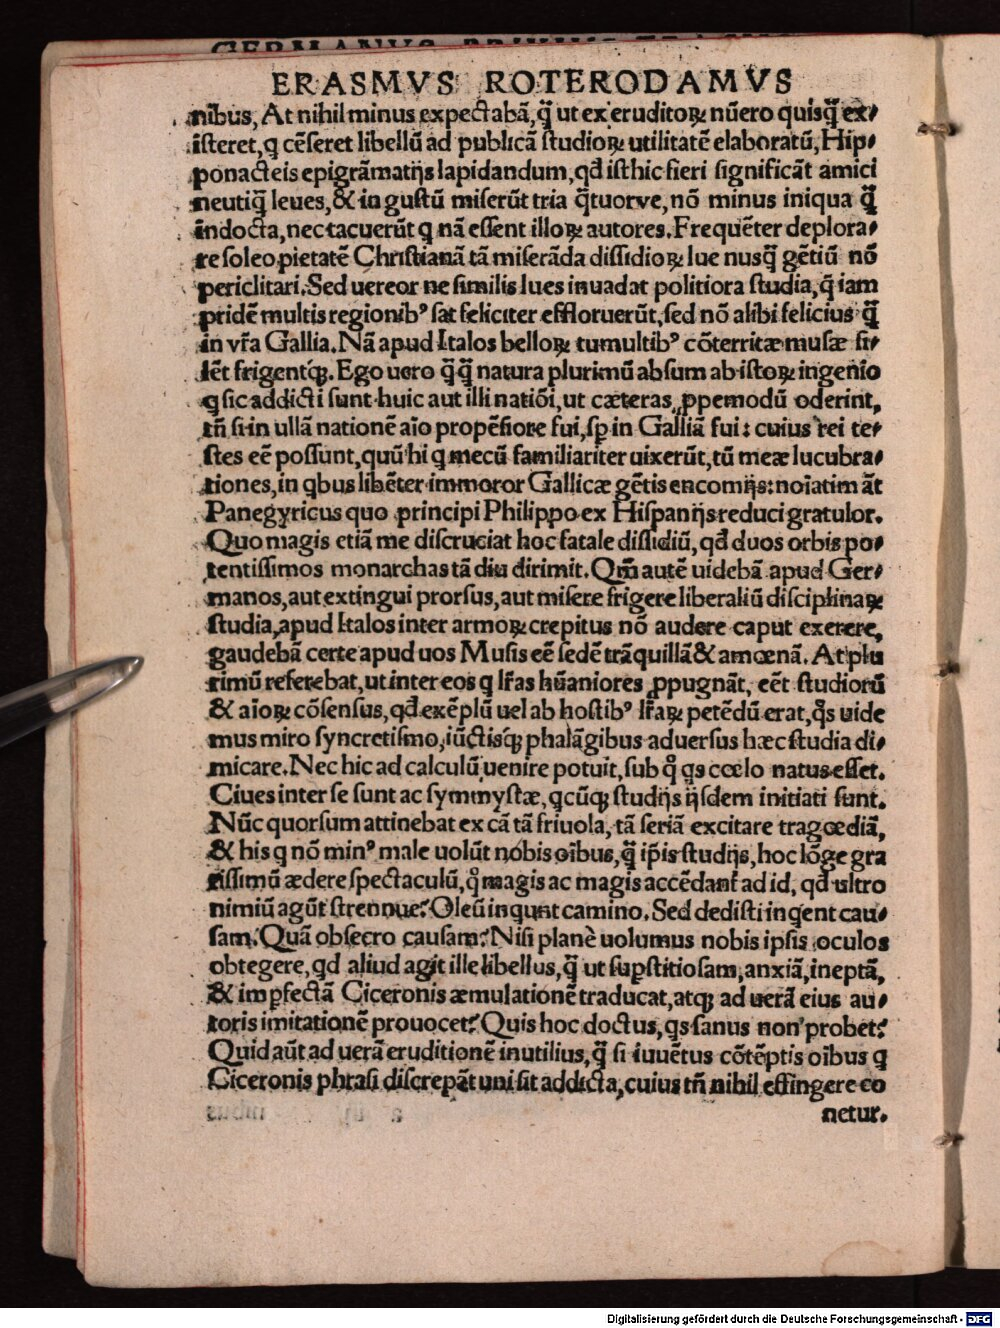 ERASMVS ROTERODAMVS
nibus, At nihil minus expectabã, q̃ ut ex eruditoꝝ nũero quisq̃ ex⸗
isteret, q cẽseret libellũ ad publicã studioꝝ utilitatẽ elaboratũ, Hip⸗
ponacteis epigrãmatijs lapidandum, qđ isthic fieri significãt amici
neutiq̃ leues, & in gustũ miserũt tria q̃tuorve, nõ minus iniqua q̃
indocta, nec tacuerũt q nã essent illoꝝ autores. Frequẽter deplora⸗
re soleo pietatẽ Christianã tã miserãda dissidioꝝ lue nusq̃ gẽtiũ nõ
periclitari. Sed uereor ne similis lues inuadat politiora studia, q̃ iam
pridẽ multis regionibꝰ sat feliciter effloruerũt, sed nõ alibi felicius q̃
in vr̃a Gallia. Nã apud Italos belloꝝ tumultibꝰ cõterritæ musæ si⸗
lẽt frigentq́ꝫ. Ego uero q̃q̃ natura plurimũ absum ab istoꝝ ingenio
q sic addicti sunt huic aut illi natiõi, ut cæteras ꝓpemodũ oderint,
tñ si in ullã nationẽ aĩo propẽsiore fui, sꝑ in Galliã fui: cuius rei te⸗
stes eẽ possunt, quũ hi q mecũ familiariter uixerũt, tũ meæ lucubra⸗
tiones, in qbus libẽter immoror Gallicæ gẽtis encomijs: noĩatim ãt
Panegyricus quo principi Philippo ex Hispanijs reduci gratulor.
Quo magis etiã me discruciat hoc fatale dissidiũ, qđ duos orbis po⸗
tentissimos monarchas tã diu dirimit. Qm̃ autẽ uidebã apud Ger⸗
manos, aut extingui prorsus, aut misere frigere liberaliũ disciplinaꝝ
studia, apud Italos inter armoꝝ crepitus nõ audere caput exerere,
gaudebã certe apud uos Musis eẽ sedẽ trãquillã & amœnã. At plu
rimũ referebat, ut inter eos q lr̃as hũaniores ꝓpugnãt, eẽt studiorũ
& aĩoꝝ cõsensus, qđ exẽplũ uel ab hostibꝰ lr̃aꝝ petẽdũ erat, q̃s uide
mus miro syncretismo, iũctisq́ꝫ phalãgibus aduersus hæc studia di⸗
micare. Nec hic ad calculũ uenire potuit, sub q̊ qs cœlo natus esset.
Ciues inter se sunt ac symmystæ, qcũqꝫ studijs ijsdem initiati sunt.
Nũc quorsum attinebat ex cã tã friuola, tã seriã excitare tragœdiã,
& his q nõ minꝰ male uolũt nobis oĩbus, q̃ ip̃is studijs, hoc lõge gra
tissimũ ædere spectaculũ, q̊ magis ac magis accẽdant̃ ad id, qđ ultro
nimiũ agũt strennue? Oleũ inqunt camino. Sed dedisti inqent cau⸗
sam. Quã obsecro causam? Nisi planè uolumus nobis ipsis oculos
obtegere, qd aliud agit ille libellus, q̃ ut suꝑstitiosam, anxiã, ineptã,
& imꝑfectã Ciceronis æmulationẽ traducat, atqꝫ ad uerã eius au⸗
toris imitationẽ prouocet? Quis hoc doctus, qs sanus non probet?
Quid aũt ad uerã eruditionẽ inutilius, q̃ si iuuẽtus cõtẽptis oĩbus q
Ciceronis phrasi discrepãt uni sit addicta, cuius tñ nihil effingere co
netur.
Digitalisierung gefördert durch die Deutsche Forschungsgemeinschaft - DFG